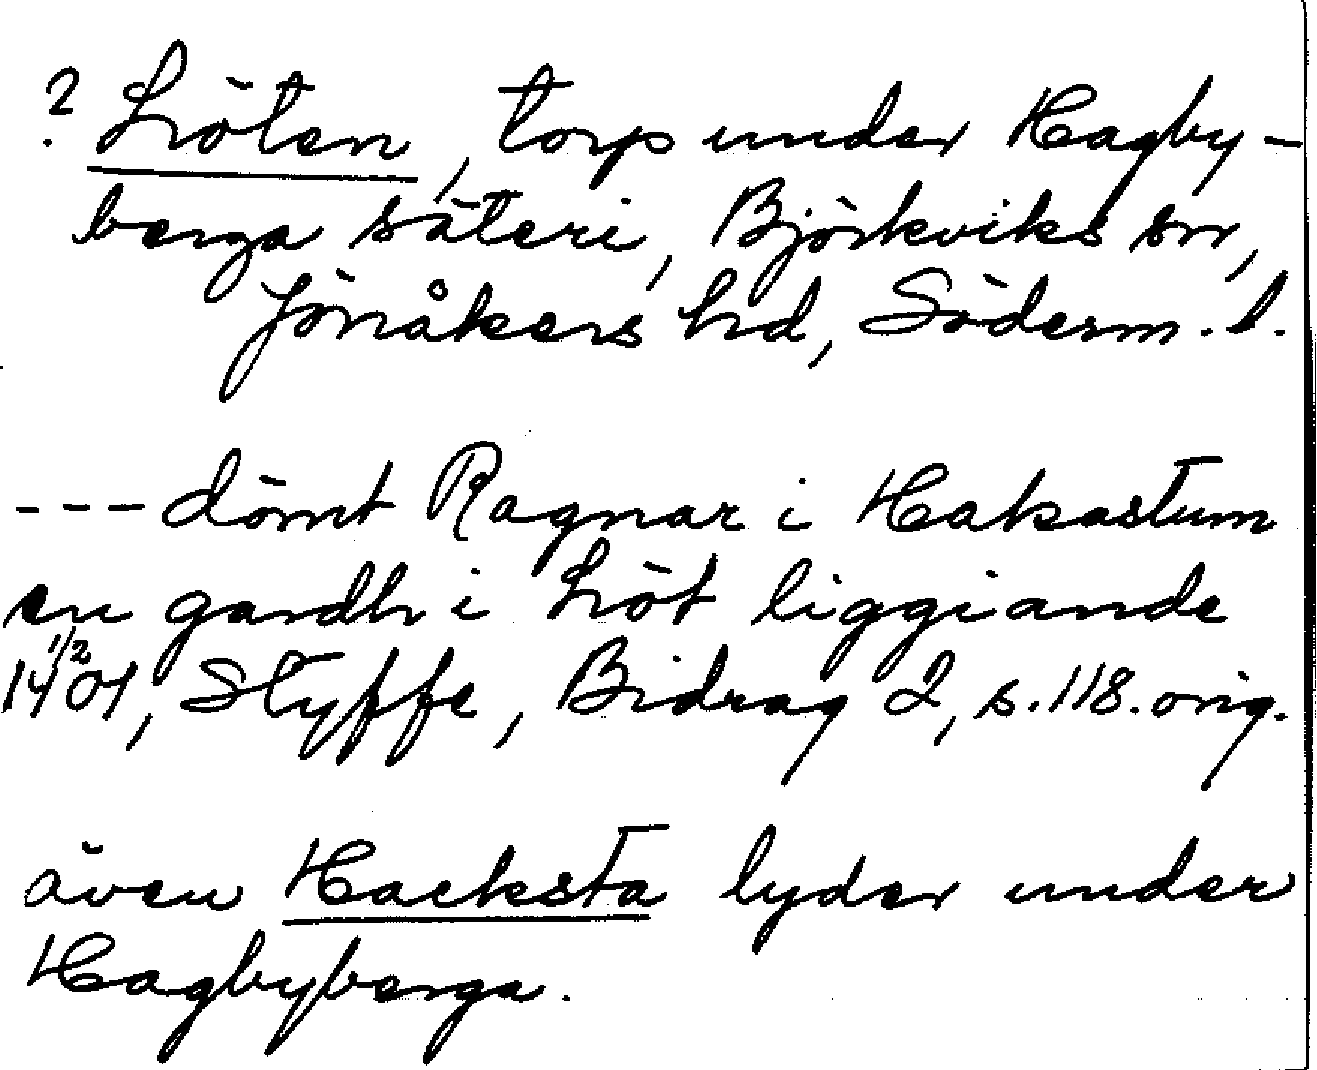 ? Löten, torp under Hagby-
berga säteri, Björkviks sn,
Jönåkers hd, Söderm. l.
--- dömt Ragnar i Hakastum
en gardh i Löt liggiande
1/2
1401, Styffe, Bidrag 2, s. 118. orig.
även Hacksta lyder under
Hagbyberga.